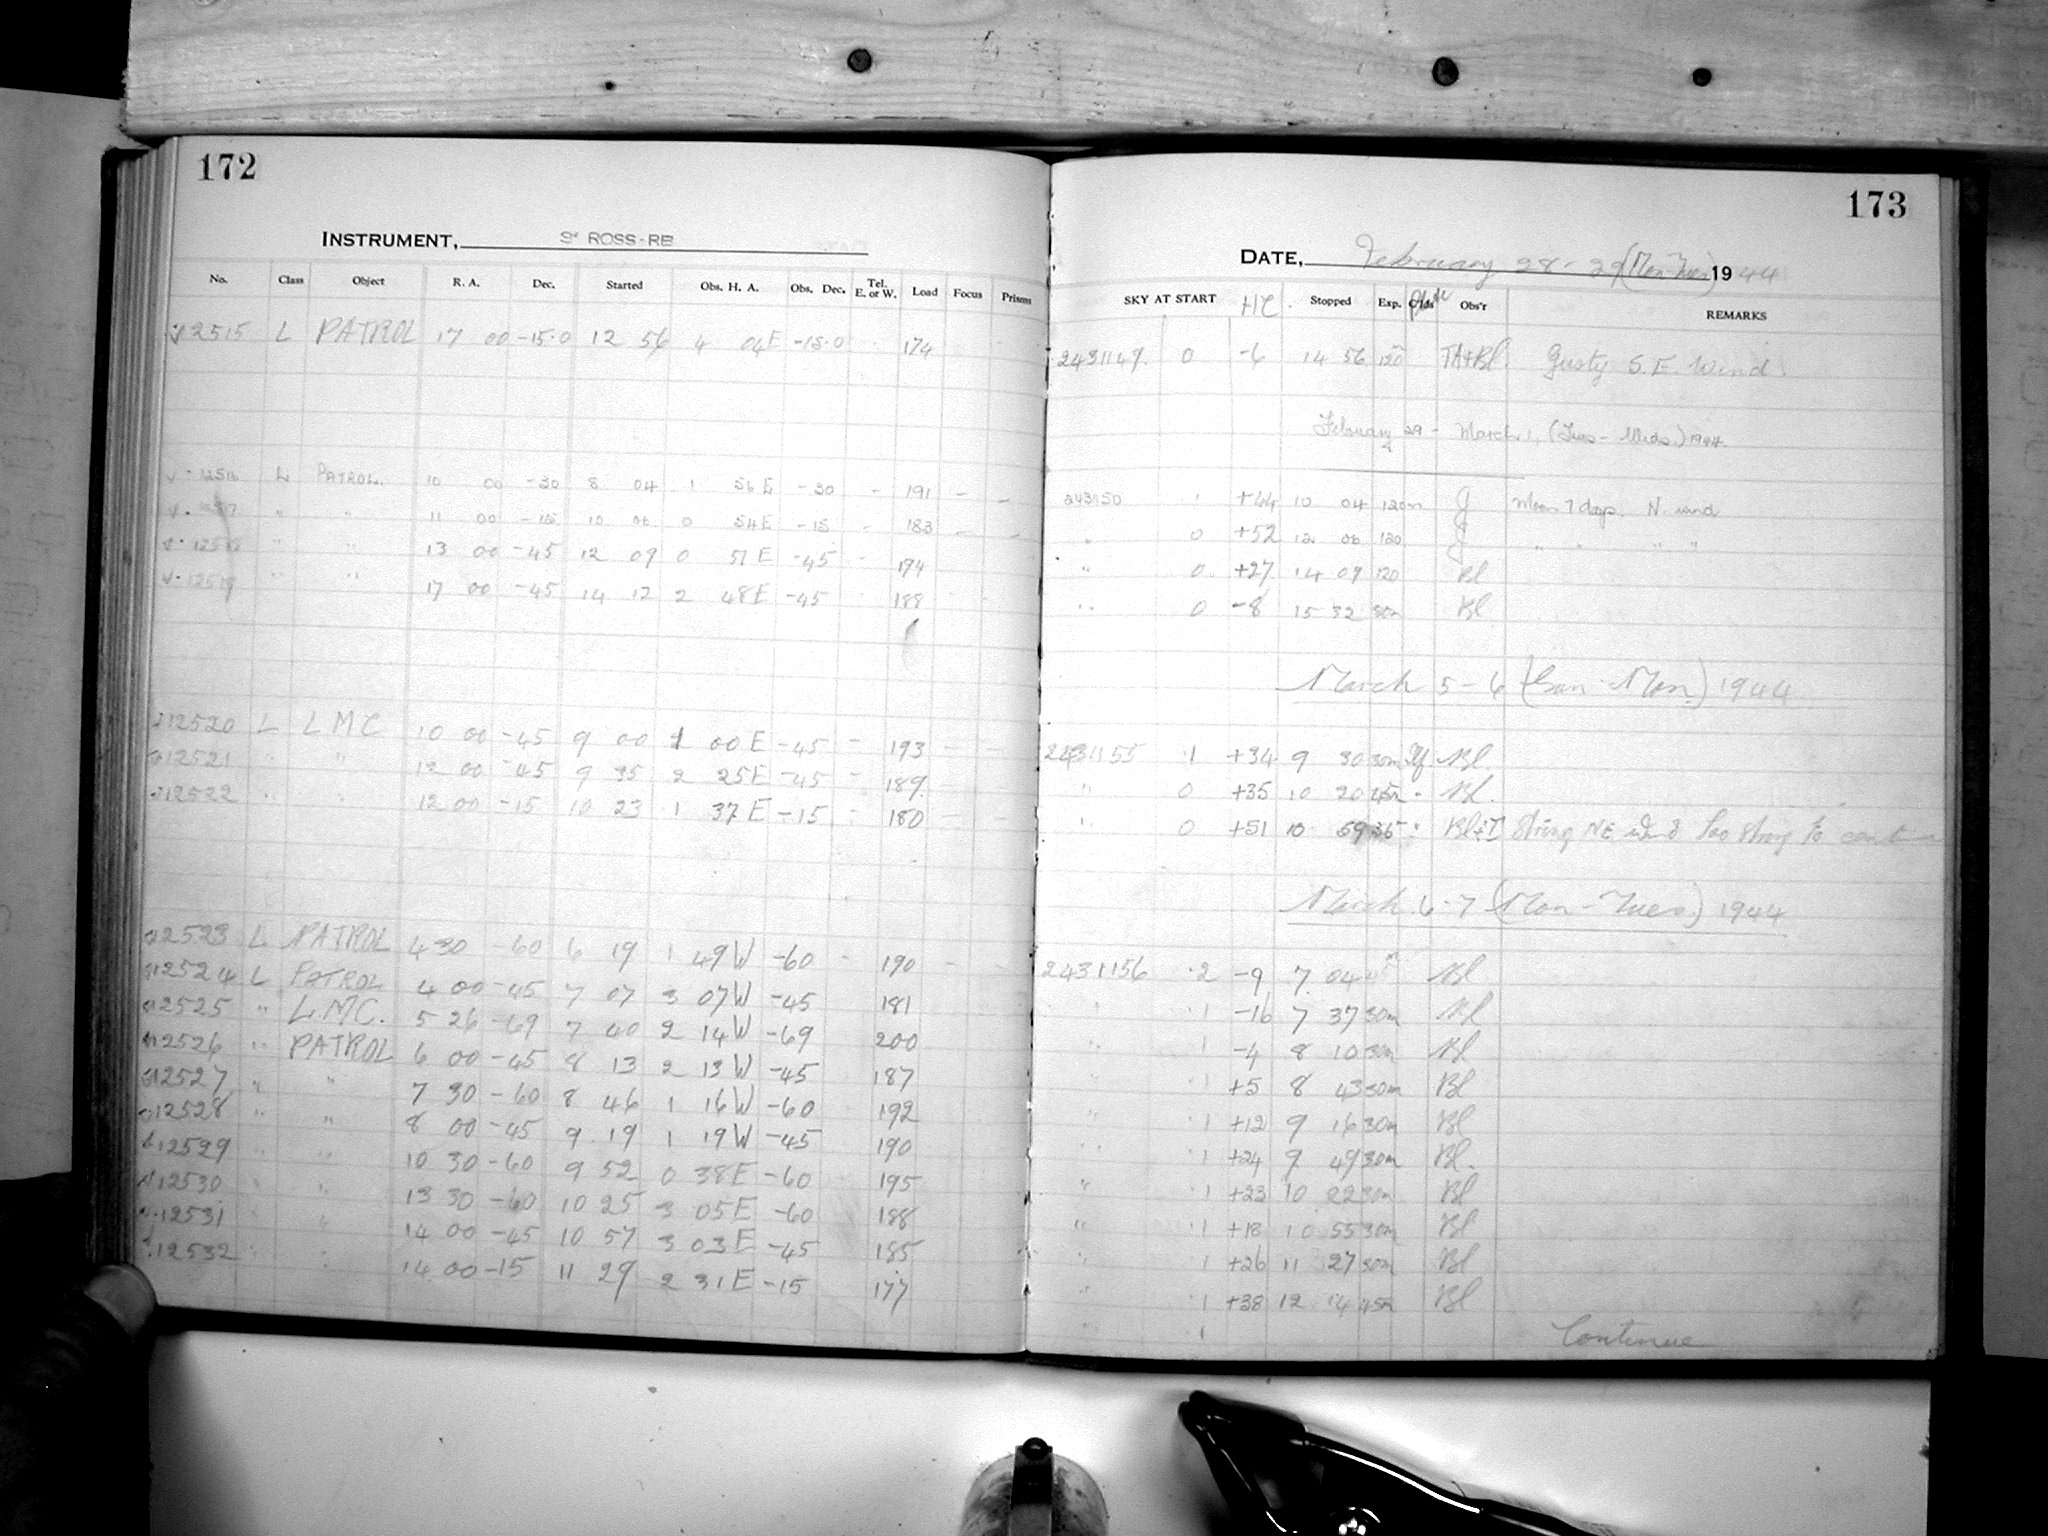 172
INSTRUMENT, 3" ROSS-RB
No. Class Object R. A. Dec. Started Obs. H. A. Obs. Dec. Tel. E. or W. Load Focus Prisms
12515 L PATROL 17 00 -15.0 12 56 4 04E -15.0 174
12516 L PATROL. 10 00 -30 8 04 1 56E -30 - 191 - -
12517 " " 11 00 -15 10 06 0 54E -15 - 183 - -
12518 " " 13 00 -45 12 09 0 51E -45 - 194
12519 " " 17 00 -45 14 12 2 48E -45 188
12520 L LMC 10 00 -45 9 00 1 00E -45 - 193 - -
12521 " " 12 00 -45 9 35 2 25E -45 - 189. - -
12522 " " 12 00 -15 10 23 1 37E -15 - 180 - -
12523 L PATROL 4 30 -60 6 19 1 49W -60 - 190 -
12524 L PATROL 4 00 -45 7 07 3 07W -45 181
12525 " L.MC. 5 26 -69 7 40 2 14W -69 200
12526 " PATROL 6 00 -45 8 13 2 13W -45 187
12527 " " 7 30 -60 8 46 1 16W -60 192
12528 " " 8 00 -45 9 19 1 19W -45 190
12529 " " 10 30 -60 9 52 0 38E -60 195
12530 " " 13 30 -60 10 25 3 05E -60 188
12531 " " 14 00 -45 10 57 3 03E -45 185
12532 " " 14 00 -15 11 29 2 31E -15 177
173
DATE, February 28-29 (Mon-Tues) 1944
SKY AT START Stopped Exp. Obs'r REMARKS
2431149. 0 -6 14 56 120 TA+Bl. Gusty S.E. Wind.
February 29 - March 1, (Tues - Weds.) 1944.
243150 1 +44 10 04 120m J Moon 7 days. N. wind
" 0 +52 12 06 120 J " " " "
" 0. +27 14 09 120 Bl
" 0 -8 15 32 80m Bl
March 5-6 (Sun-Mon) 1944
2431155 .1 +34 9 30 30m Bl.
" 0 +35 10 20 45m " Bl.
" 0 +51 10 59 36 " Bl+J Strong NE wind too strong to
March 6-7 (Mon-Tues.) 1944
2431156 .2 -9 7 04 Bl
" .1 -16 7 37 30m Bl
" .1 -4 8 10 30m Bl
" .1 +5 8 43 30m Bl
" .1 +12 9 16 30m Bl
" .1 +24 9 49 30m Bl.
" .1 +23 10 22 30m Bl
" .1 +18 10 55 30m Bl
" .1 +26 11 27 30m Bl
" .1 +38 12 14 45m Bl
" .1
Continue